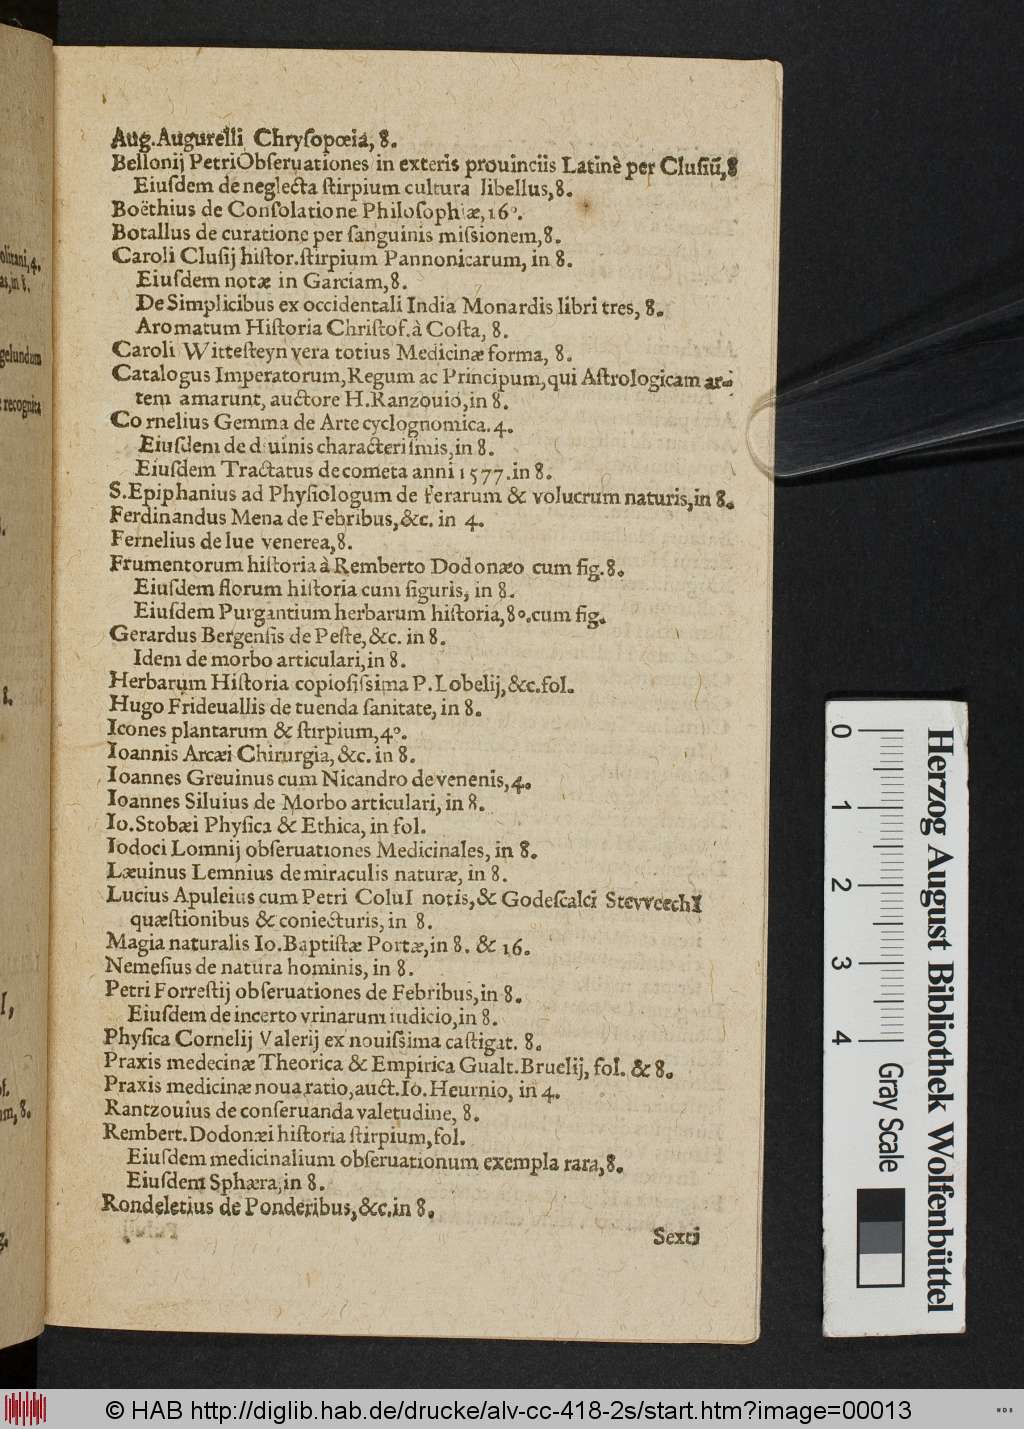 olitani,4.
as,in 8.
gelundum
recognita
8.
I,
of.
um,8.
Aug.Augurelli Chryſopœia, 8.
Bellonij PetriObſeruationes in exteris prouinciis Latinè per Cluſiũ,8
Eiuſdem de neglecta ſtirpium cultura libellus,8.
Boëthius de Conſolatione Philoſophiæ,16°.
Botallus de curatione per ſanguinis miſsionem,8.
Caroli Cluſij hiſtor.ſtirpium Pannonicarum, in 8.
Eiuſdem notæ in Garciam,8.
De Simplicibus ex occidentali India Monardis libri tres, 8.
Aromatum Hiſtoria Chriſtof.à Coſta, 8.
Caroli Witteſteyn vera totius Medicinæ forma, 8.
Catalogus Imperatorum,Regum ac Principum,qui Aſtrologicam ar-
tem amarunt, auctore H.Ranzouio,in 8.
Cornelius Gemma de Arte cyclognomica.4.
Eiuſdem de diuinis characteriſmis,in 8.
Eiuſdem Tractatus de cometa anni 1577.in 8.
S.Epiphanius ad Phyſiologum de ferarum & volucrum naturis,in 8.
Ferdinandus Mena de Febribus,&c. in 4.
Fernelius de lue venerea,8.
Frumentorum hiſtoria à Remberto Dodonæo cum fig.8.
Eiuſdem florum hiſtoria cum figuris, in 8.
Eiuſdem Purgantium herbarum hiſtoria,8°.cum fig.
Gerardus Bergenſis de Peſte,&c. in 8.
Idem de morbo articulari,in 8.
Herbarum Hiſtoria copioſiſsima P.Lobelij,&c.fol.
Hugo Frideuallis de tuenda ſanitate, in 8.
Icones plantarum & ſtirpium,4°.
Ioannis Arcæi Chirurgia,&c. in 8.
Ioannes Greuinus cum Nicandro de venenis,4.
Ioannes Siluius de Morbo articulari, in 8.
Io.Stobæi Phyſica & Ethica, in fol.
Iodoci Lomnij obſeruationes Medicinales, in 8.
Læuinus Lemnius de miraculis naturæ, in 8.
Lucius Apuleius cum Petri ColuI notis,& Godeſcalci StevveechI
quæſtionibus & coniecturis, in 8.
Magia naturalis Io.Baptiſtæ Portæ,in 8. & 16.
Nemeſius de natura hominis, in 8.
Petri Forreſtij obſeruationes de Febribus,in 8.
Eiuſdem de incerto vrinarum iudicio,in 8.
Phyſica Cornelij Valerij ex nouiſsima caſtigat. 8.
Praxis medecinæ Theorica & Empirica Gualt.Bruelij, fol. & 8.
Praxis medicinæ noua ratio,auct.Io.Heurnio, in 4.
Rantzouius de conſeruanda valetudine, 8.
Rembert.Dodonæi hiſtoria ſtirpium,fol.
Eiuſdem medicinalium obſeruationum exempla rara,8.
Eiuſdem Sphæra,in 8.
Rondeletius de Ponderibus,&c.in 8.
Sexti
0 1 2 3 4
Gray Scale
Herzog August Bibliothek Wolfenbüttel
© HAB http://diglib.hab.de/drucke/alv-cc-418-2s/start.htm?image=00013